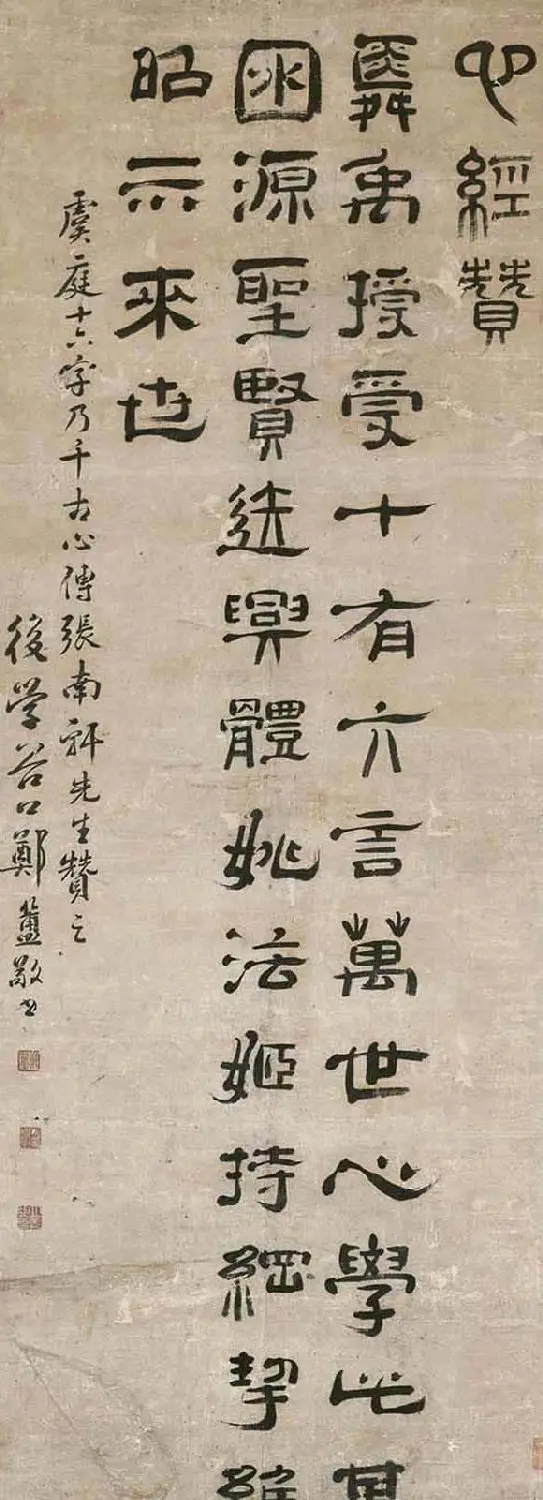 心經贊
舜禹授受十有六言萬世心學此其
囦源聖賢迭興體姚法姬持綱挈維
昭示來世
虞庭十六字乃千古心傳張南軒先生贊之
後學谷口鄭簠敬書